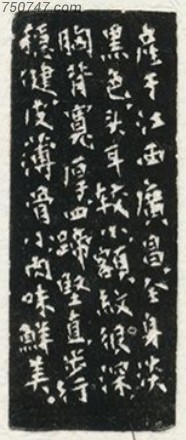 750747.com
产于江西广昌。全身淡
黑色，头耳较小，额纹很深，
胸背宽厚，四蹄坚直，步行
稳健，皮薄骨小，肉味鲜美。